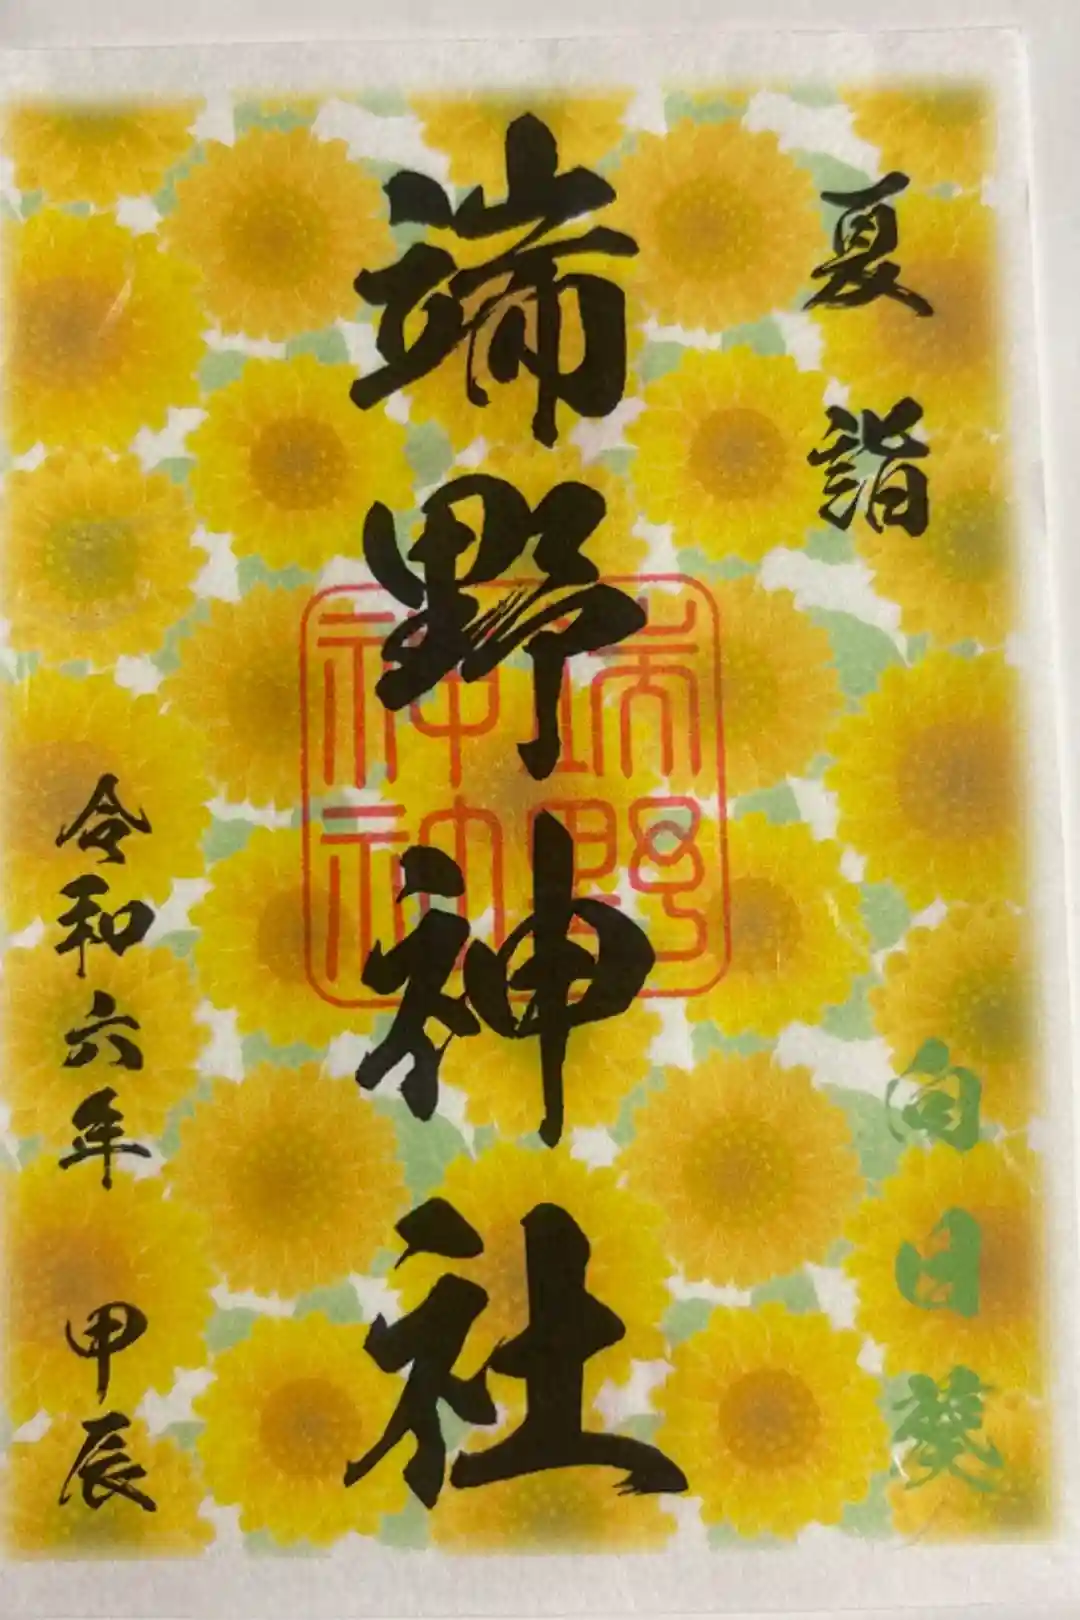 夏詣
向日葵
端野神社
端野
神社
令和六年 甲辰